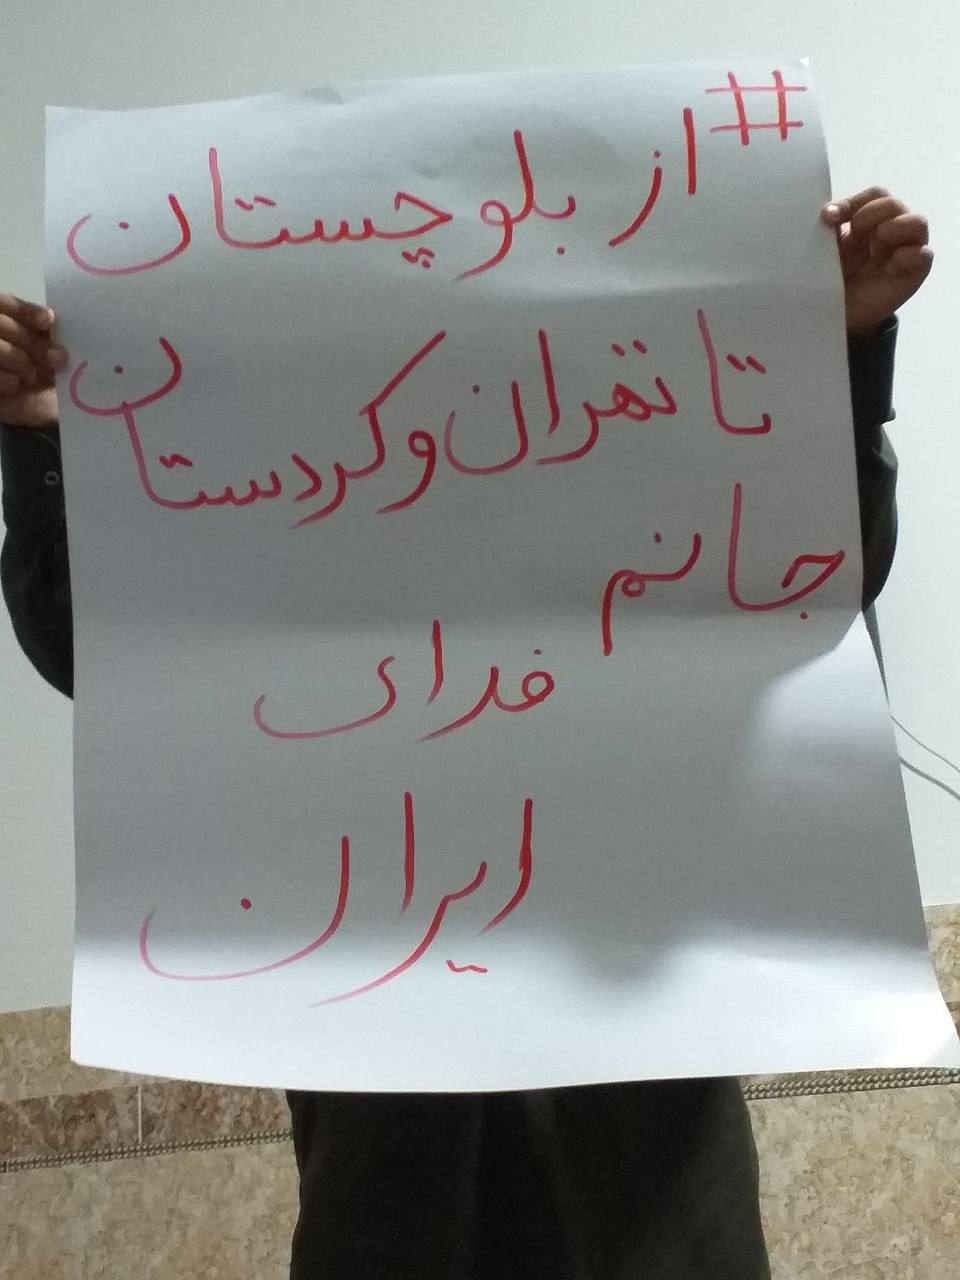 #از بلوچستان
تا تهران و کردستان
جانم
فدای
ایران